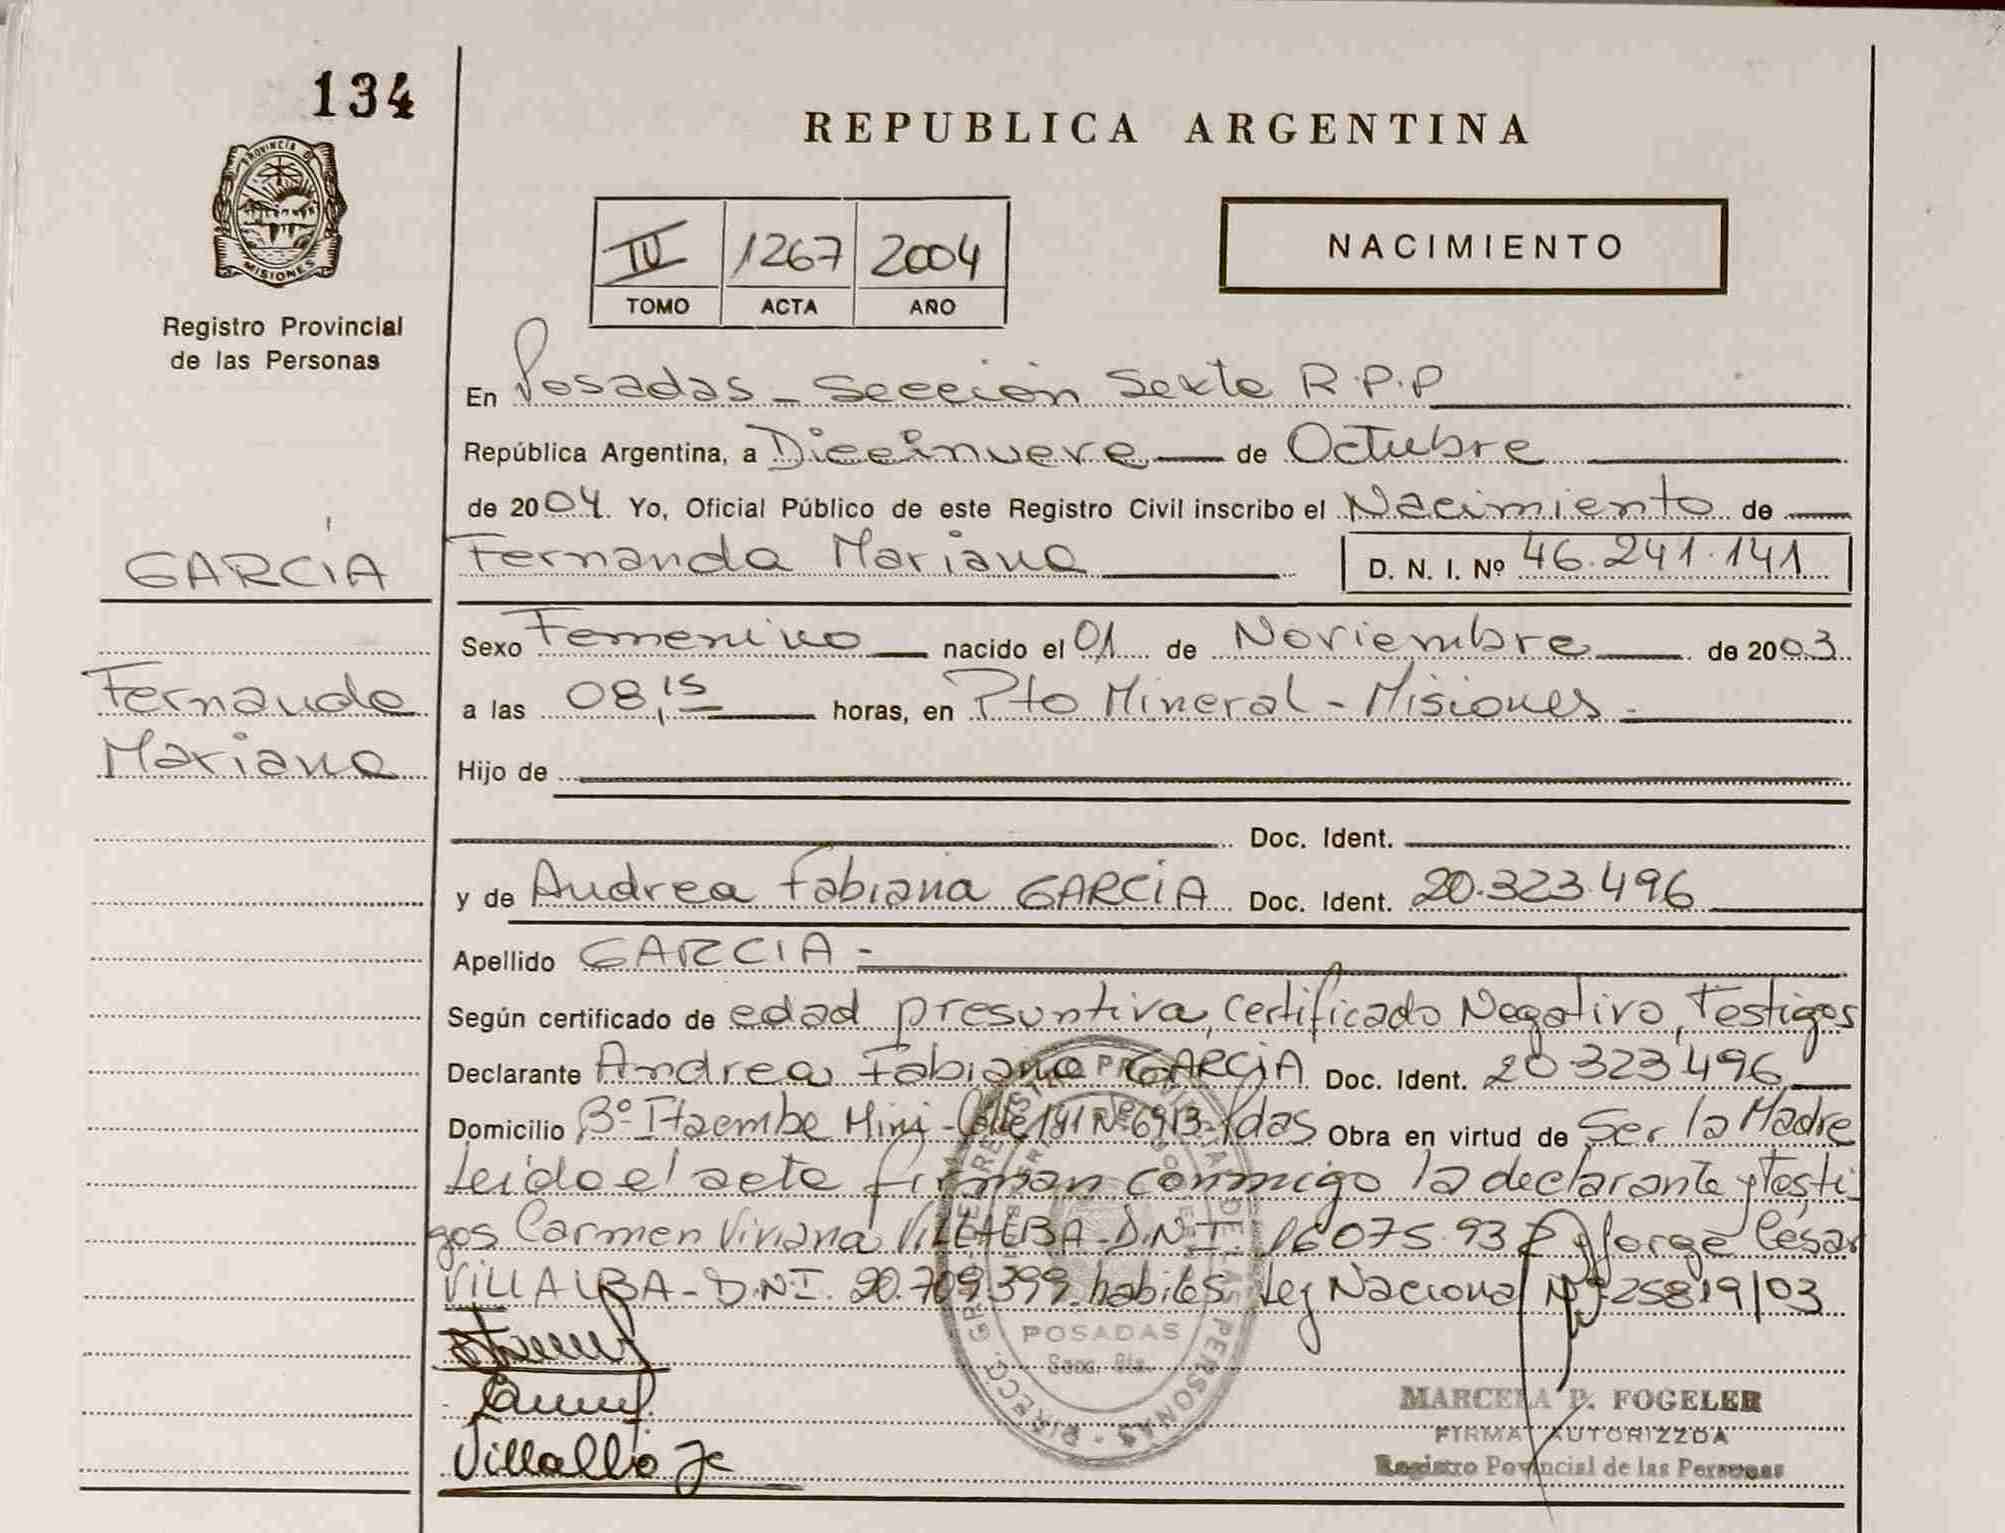 134
PROVINCIA DE
MISIONES
Registro Provincial
de las Personas
REPUBLICA ARGENTINA
IV 1267 2004
TOMO ACTA AÑO
NACIMIENTO
En Posadas - Sección Sexta R.P.P
República Argentina, a Diecinueve de Octubre
de 2004. Yo, Oficial Público de este Registro Civil inscribo el Nacimiento de
GARCÍA
Fernanda Mariana D. N. I. Nº 46.241.141
Sexo Femenino nacido el 01 de Noviembre de 2003
Fernanda
Mariana
a las 08,15 horas, en Pto Mineral - Misiones -
Hijo de
Doc. Ident.
y de Andrea Fabiana GARCIA Doc. Ident. 20.323.496
Apellido GARCIA -
Según certificado de edad presuntiva, Certificado Negativo, Testigos
Declarante Andrea Fabiana GARCIA Doc. Ident. 20.323.496
Domicilio Bº Itaembe Mini - Calle 141 Nº 6913 - Pdas Obra en virtud de Ser la Madre
Leido el acta firman conmigo la declarante y testi-
gos Carmen Viviana VILLALBA - D.N.I. 16.075.93 y Jorge César
VILLALBA - D.N.I. 20.709.399 habiles Ley Nacional Nº 25819/03
POSADAS
Secc. 6ta.
Villalba Jc
MARCELA P. FOGELER
FIRMA AUTORIZZDA
Registro Povincial de las Personas